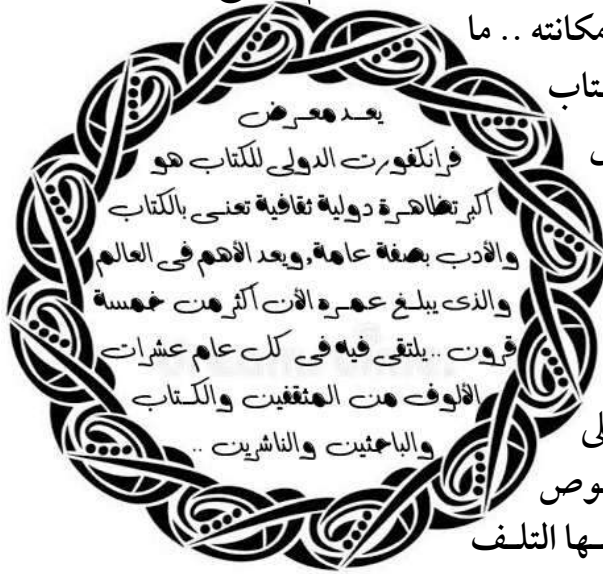 مكانته .. ما
ـتاب
يعـد معـرض
فرانكفورت الدولى للكتاب هو
أكبر تظاهـرة دولية ثقافية تعنـى بالكتاب
والأدب بصفة عامة, ويعد الأهم فى العالم
والذى يبلـغ عمـره الأن أكثر من خمسة
قرون .. يلتقى فيه فى كل عام عشرات
الألوف من المثقفين والكـتاب
والباحثين والناشرين ..
ـوص
ـها التلـف